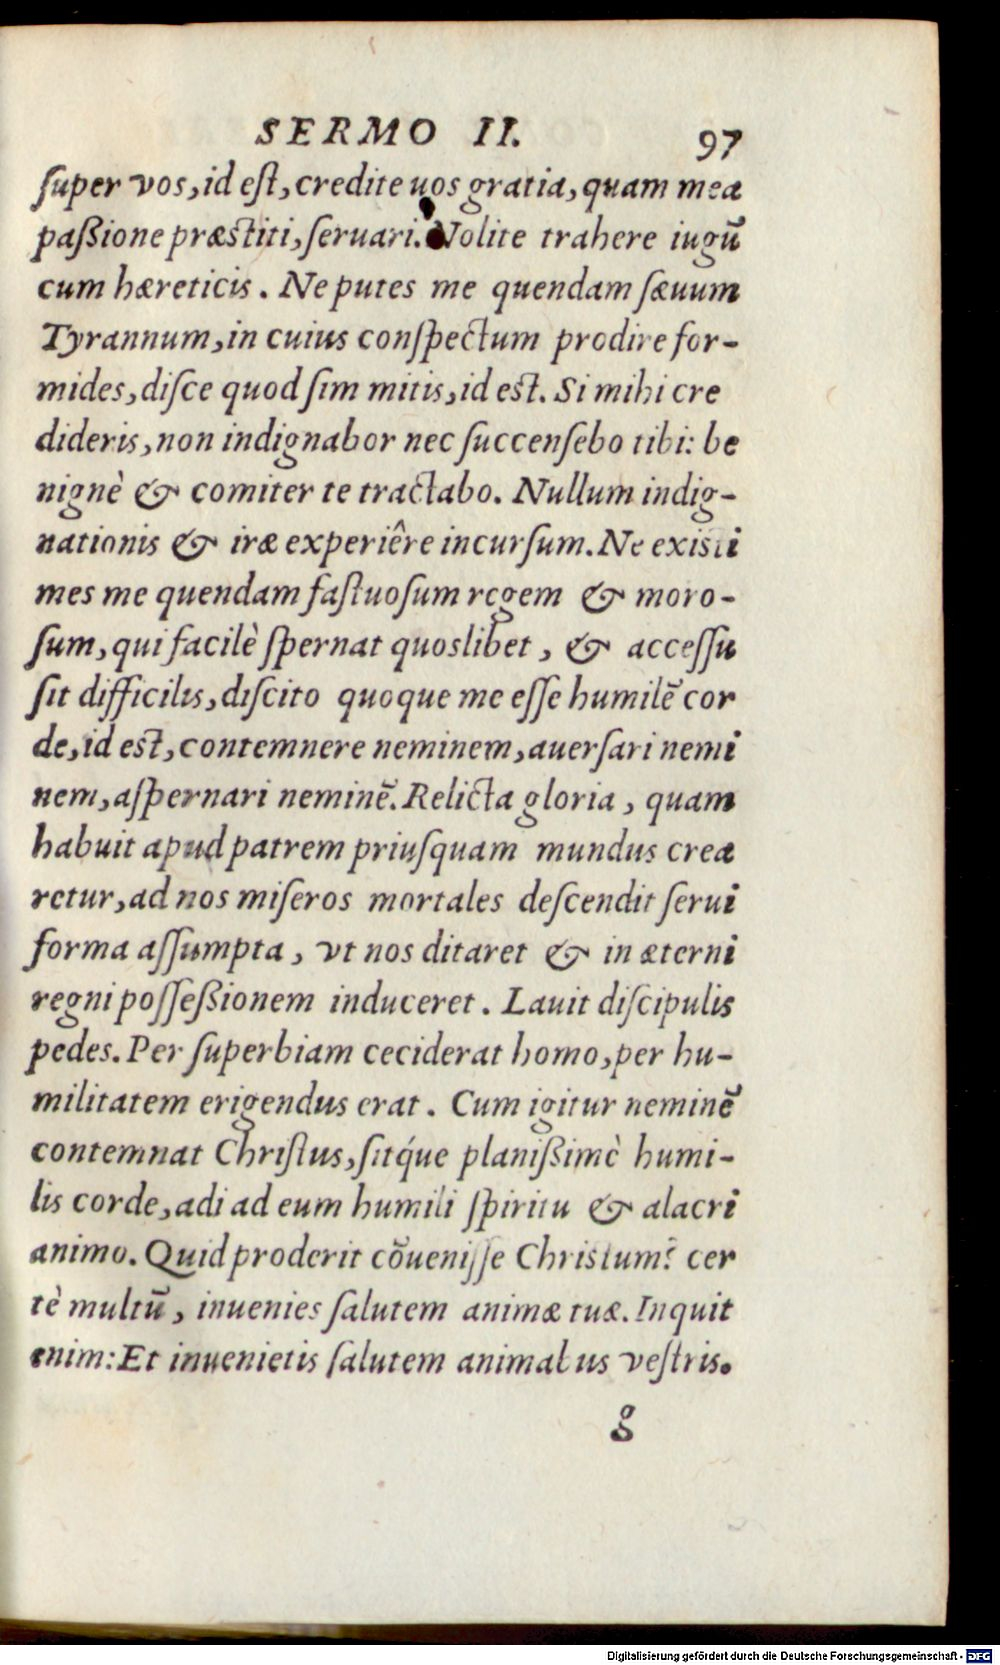 SERMO II. 97
ſuper vos, id eſt, credite uos gratia, quam mea
paßione præstiti, ſeruari. Nolite trahere iugū
cum hæreticis. Ne putes me quendam ſæuum
Tyrannum, in cuius conſpectum prodire for-
mides, diſce quod ſim mitis, id est. Si mihi cre
dideris, non indignabor nec ſuccenſebo tibi: be
nignè & comiter te tractabo. Nullum indig-
nationis & iræ experiêre incurſum. Ne existi
mes me quendam faſtuoſum regem & moro-
ſum, qui facilè ſpernat quoslibet, & acceſſu
ſit difficilis, diſcito quoque me eſſe humilē cor
de, id est, contemnere neminem, auerſari nemi
nem, aſpernari neminē. Relicta gloria, quam
habuit apud patrem priuſquam mundus crea
retur, ad nos miſeros mortales deſcendit ſerui
forma aſſumpta, vt nos ditaret & in æterni
regni poſſeßionem induceret. Lauit diſcipulis
pedes. Per ſuperbiam ceciderat homo, per hu-
militatem erigendus erat. Cum igitur neminē
contemnat Chriſtus, ſitq́ue planißimè humi-
lis corde, adi ad eum humili ſpiritu & alacri
animo. Quid proderit cōueniſſe Christum? cer
tè multū, inuenies ſalutem animæ tuæ. Inquit
enim: Et inuenietis ſalutem animabus veſtris.
g
Digitalisierung gefördert durch die Deutsche Forschungsgemeinschaft - DFG